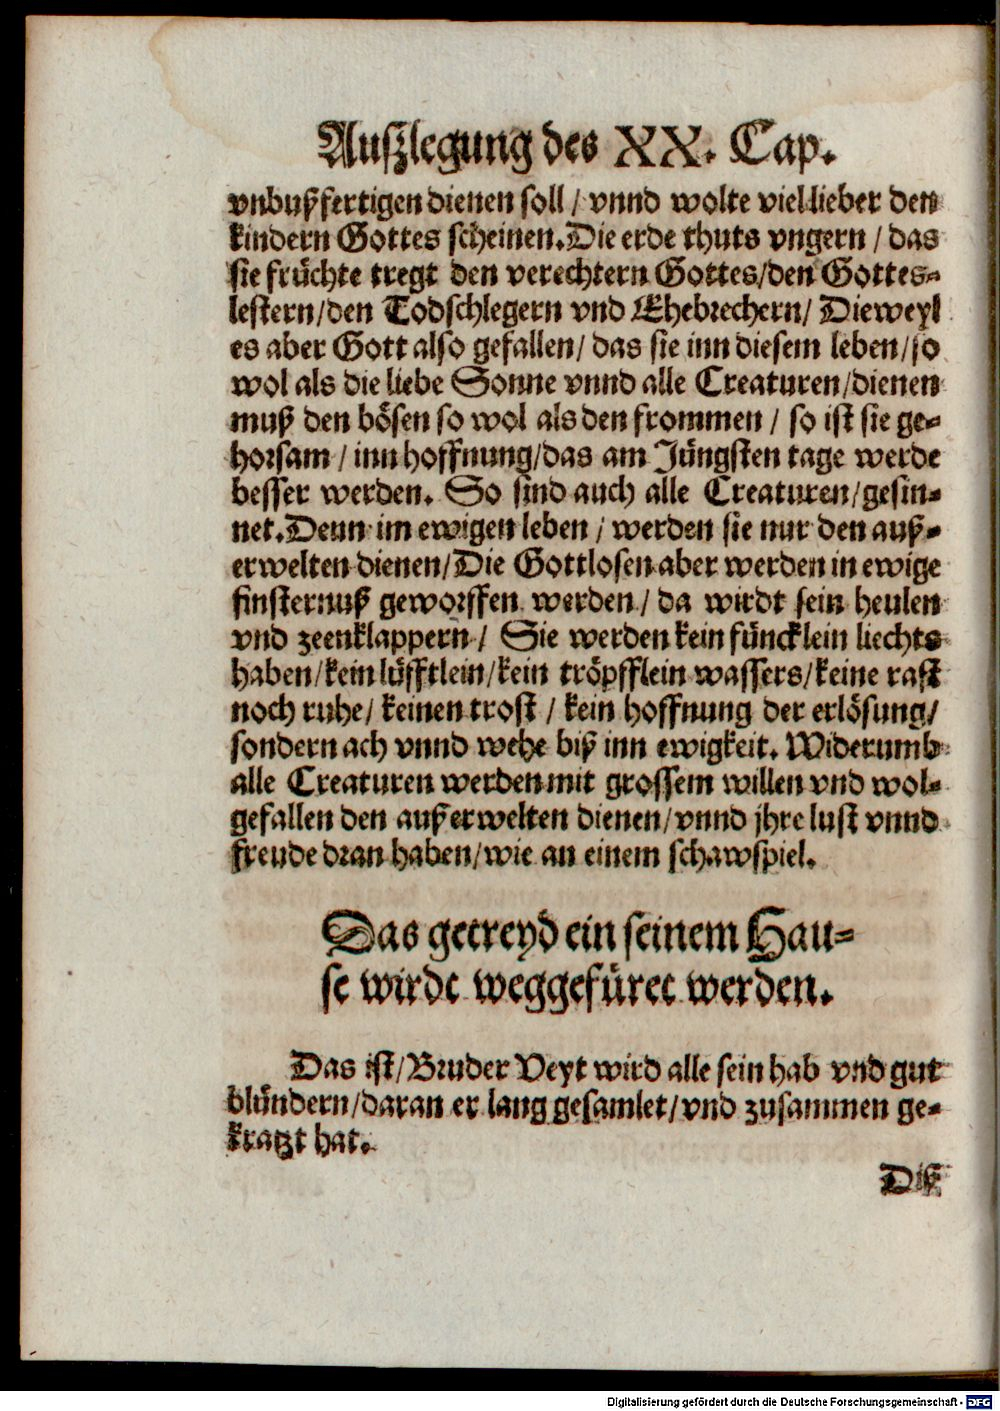 Auſzlegung des XX. Cap.
vnbußfertigen dienen soll / vnnd wolte viel lieber den
kindern Gottes scheinen. Die erde thuts vngern / das
sie früchte tregt den verechtern Gottes/den Gottes-
lestern/den Todschlegern vnd Ehebrechern/ Dieweyl
es aber Gott also gefallen/ das sie inn diesem leben/so
wol als die liebe Sonne vnnd alle Creaturen/dienen
muß den bösen so wol als den frommen / so ist sie ge-
horsam / inn hoffnung/das am Jüngsten tage werde
besser werden. So sind auch alle Creaturen/gesin-
net. Denn im ewigen leben / werden sie nur den auß-
erwelten dienen/Die Gottlosen aber werden in ewige
finsternuß geworffen werden / da wirdt sein heulen
vnd zeenklappern / Sie werden kein füncklein liechts
haben/kein lüfftlein/kein tröpfflein wassers/keine rast
noch ruhe/ keinen trost / kein hoffnung der erlösung/
sondern ach vnnd wehe biß inn ewigkeit. Widerumb
alle Creaturen werden mit grossem willen vnd wol-
gefallen den außerwelten dienen/vnnd jhre lust vnnd
freude dran haben/wie an einem schawspiel.
Das getreyd ein seinem Hau-
se wirdt weggefüret werden.
Das ist/Bruder Veyt wird alle sein hab vnd gut
blündern/daran er lang gesamlet/vnd zusammen ge-
kratzt hat.
Diß
Digitalisierung gefördert durch die Deutsche Forschungsgemeinschaft - DFG